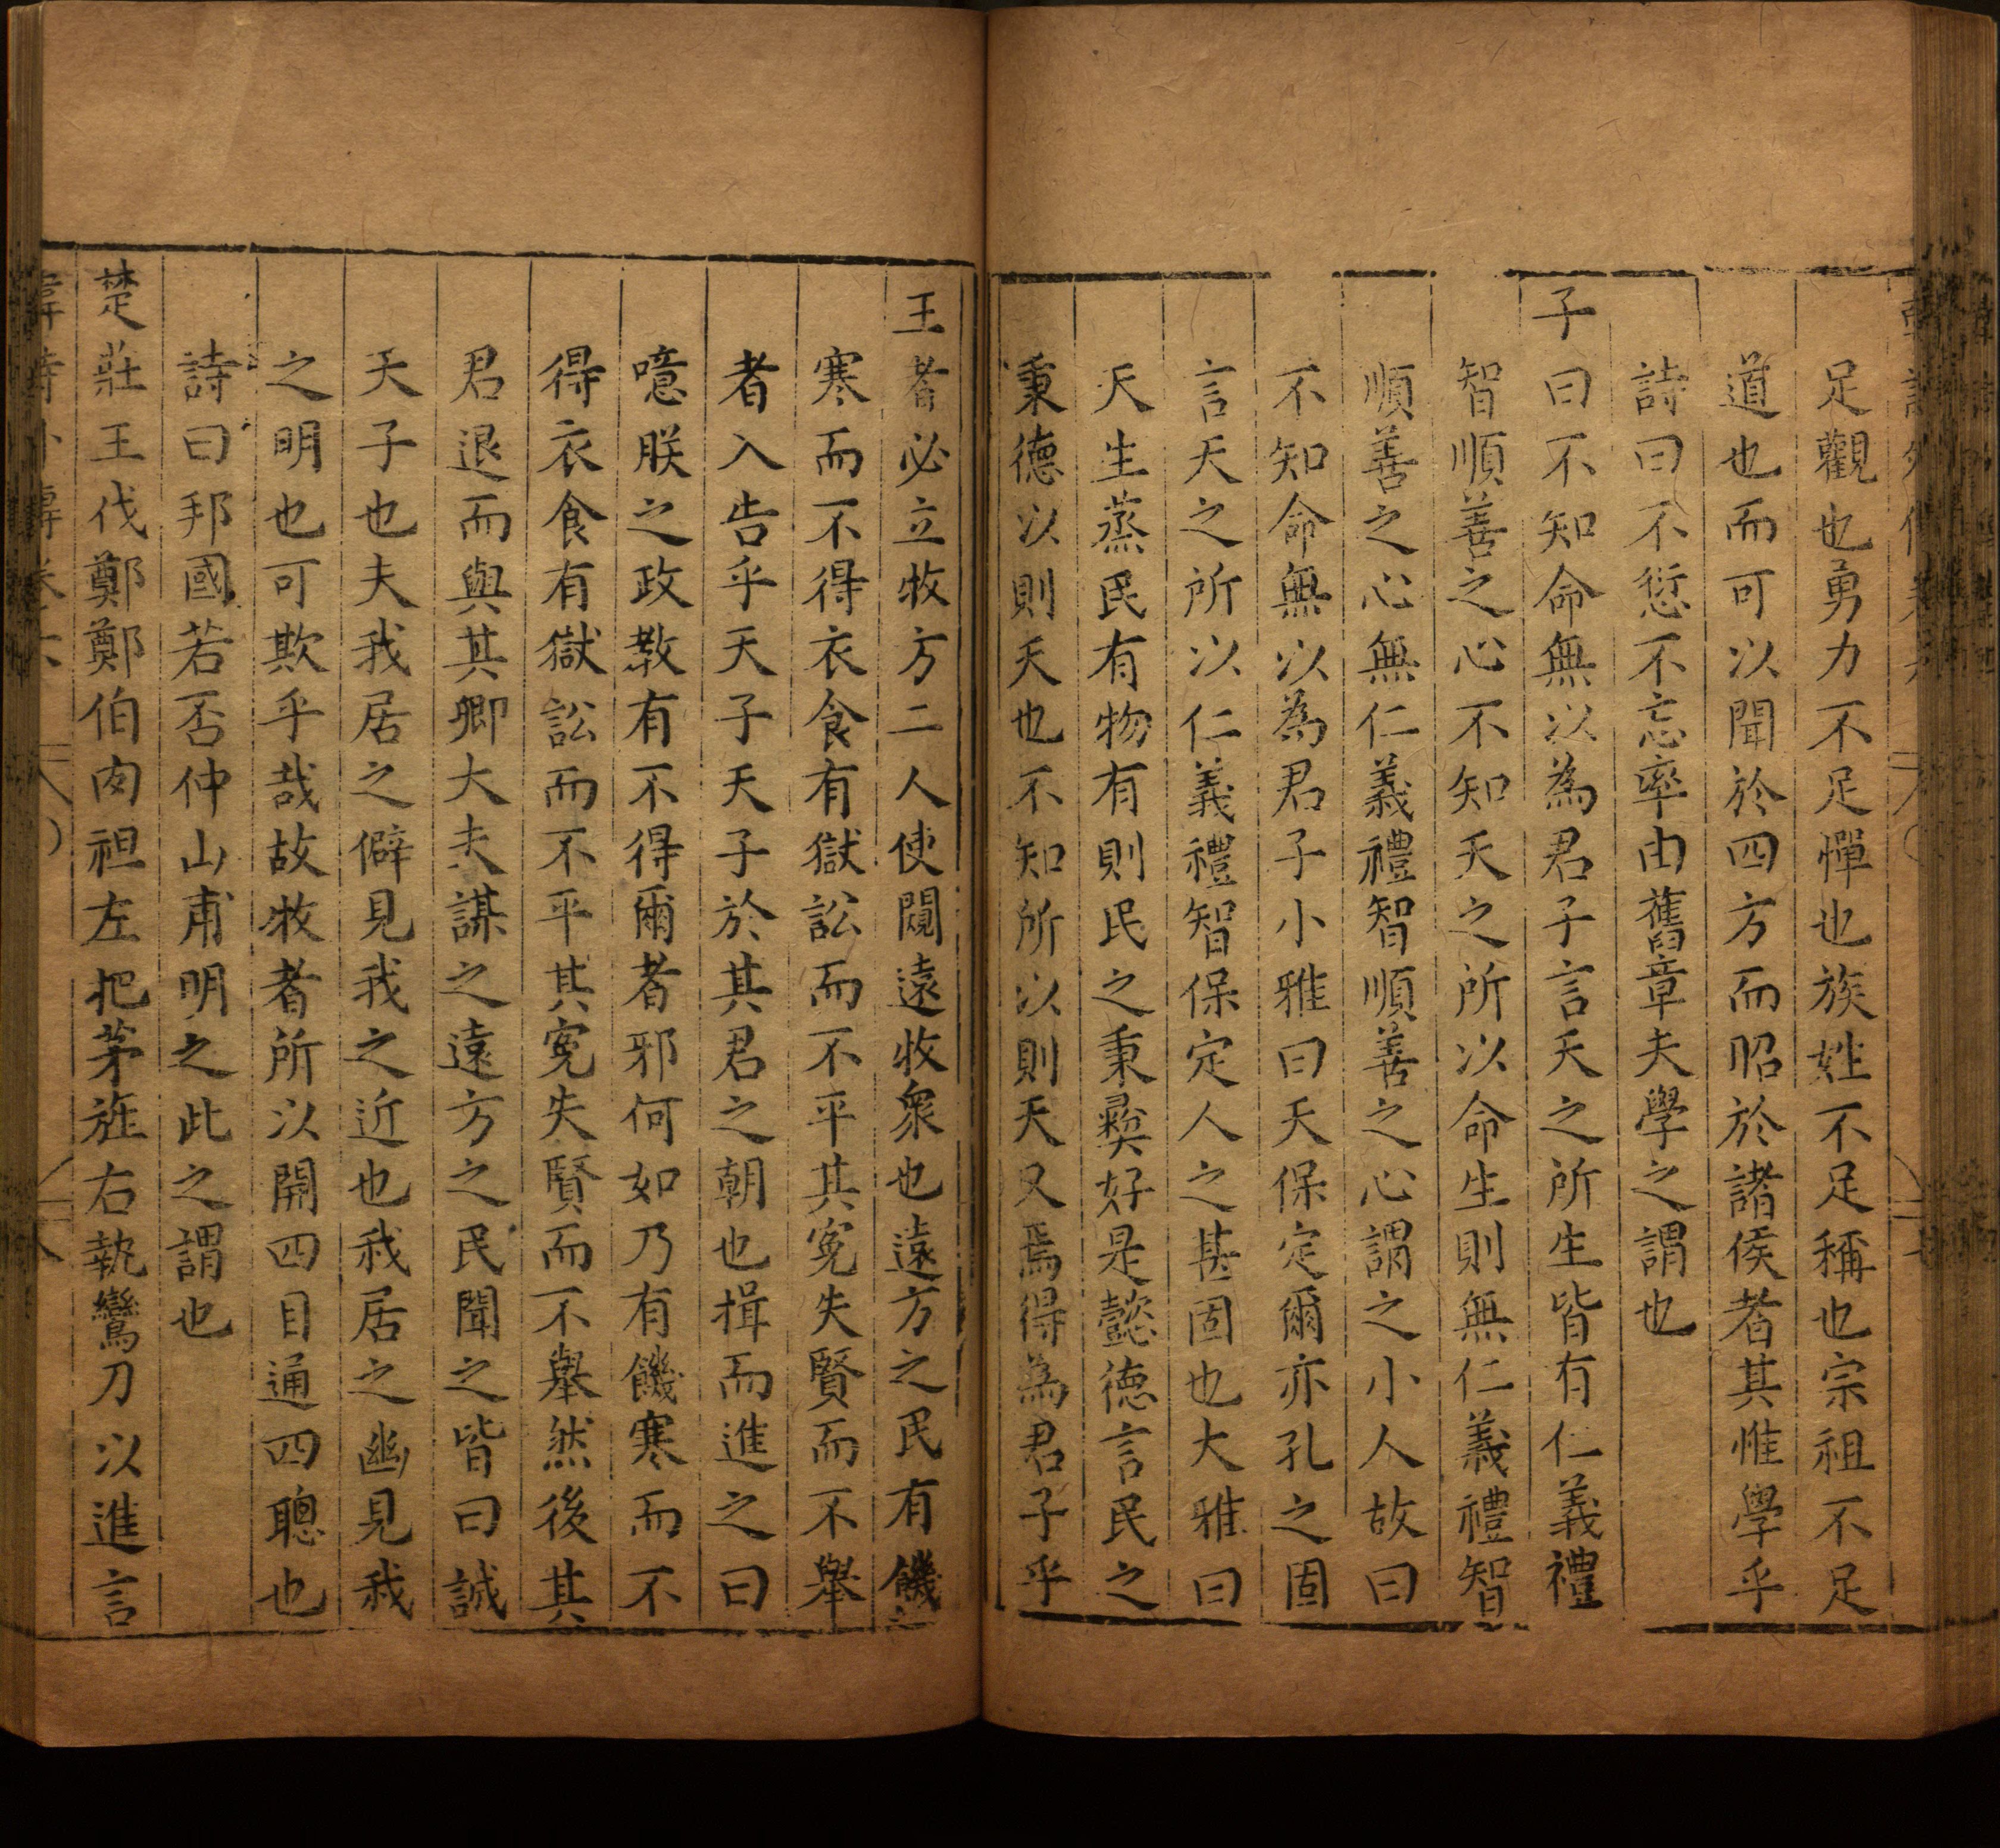 足觀也勇力不足憚也族姓不足稱也宗祖不足
道也而可以聞於四方而昭於諸侯者其惟學乎
詩曰不愆不忘率由舊章夫學之謂也
子曰不知命無以為君子言天之所生皆有仁義禮
智順善之心不知天之所以命生則無仁義禮智
順善之心無仁義禮智順善之心謂之小人故曰
不知命無以為君子小雅曰天保定爾亦孔之固
言天之所以仁義禮智保定人之甚固也大雅曰
天生蒸民有物有則民之秉彝好是懿德言民之
秉德以則天也不知所以則天又焉得為君子乎
王者必立牧方二人使闚遠牧衆也遠方之民有饑
寒而不得衣食有獄訟而不平其寃失賢而不舉
者入告乎天子天子於其君之朝也揖而進之曰
噫朕之政教有不得爾者邪何如乃有饑寒而不
得衣食有獄訟而不平其寃失賢而不舉然後其
君退而與其卿大夫謀之遠方之民聞之皆曰誠
天子也夫我居之僻見我之近也我居之幽見我
之明也可欺乎哉故牧者所以開四目通四聰也
詩曰邦國若否仲山甫明之此之謂也
楚莊王伐鄭鄭伯肉袒左把茅旌右執鸞刀以進言